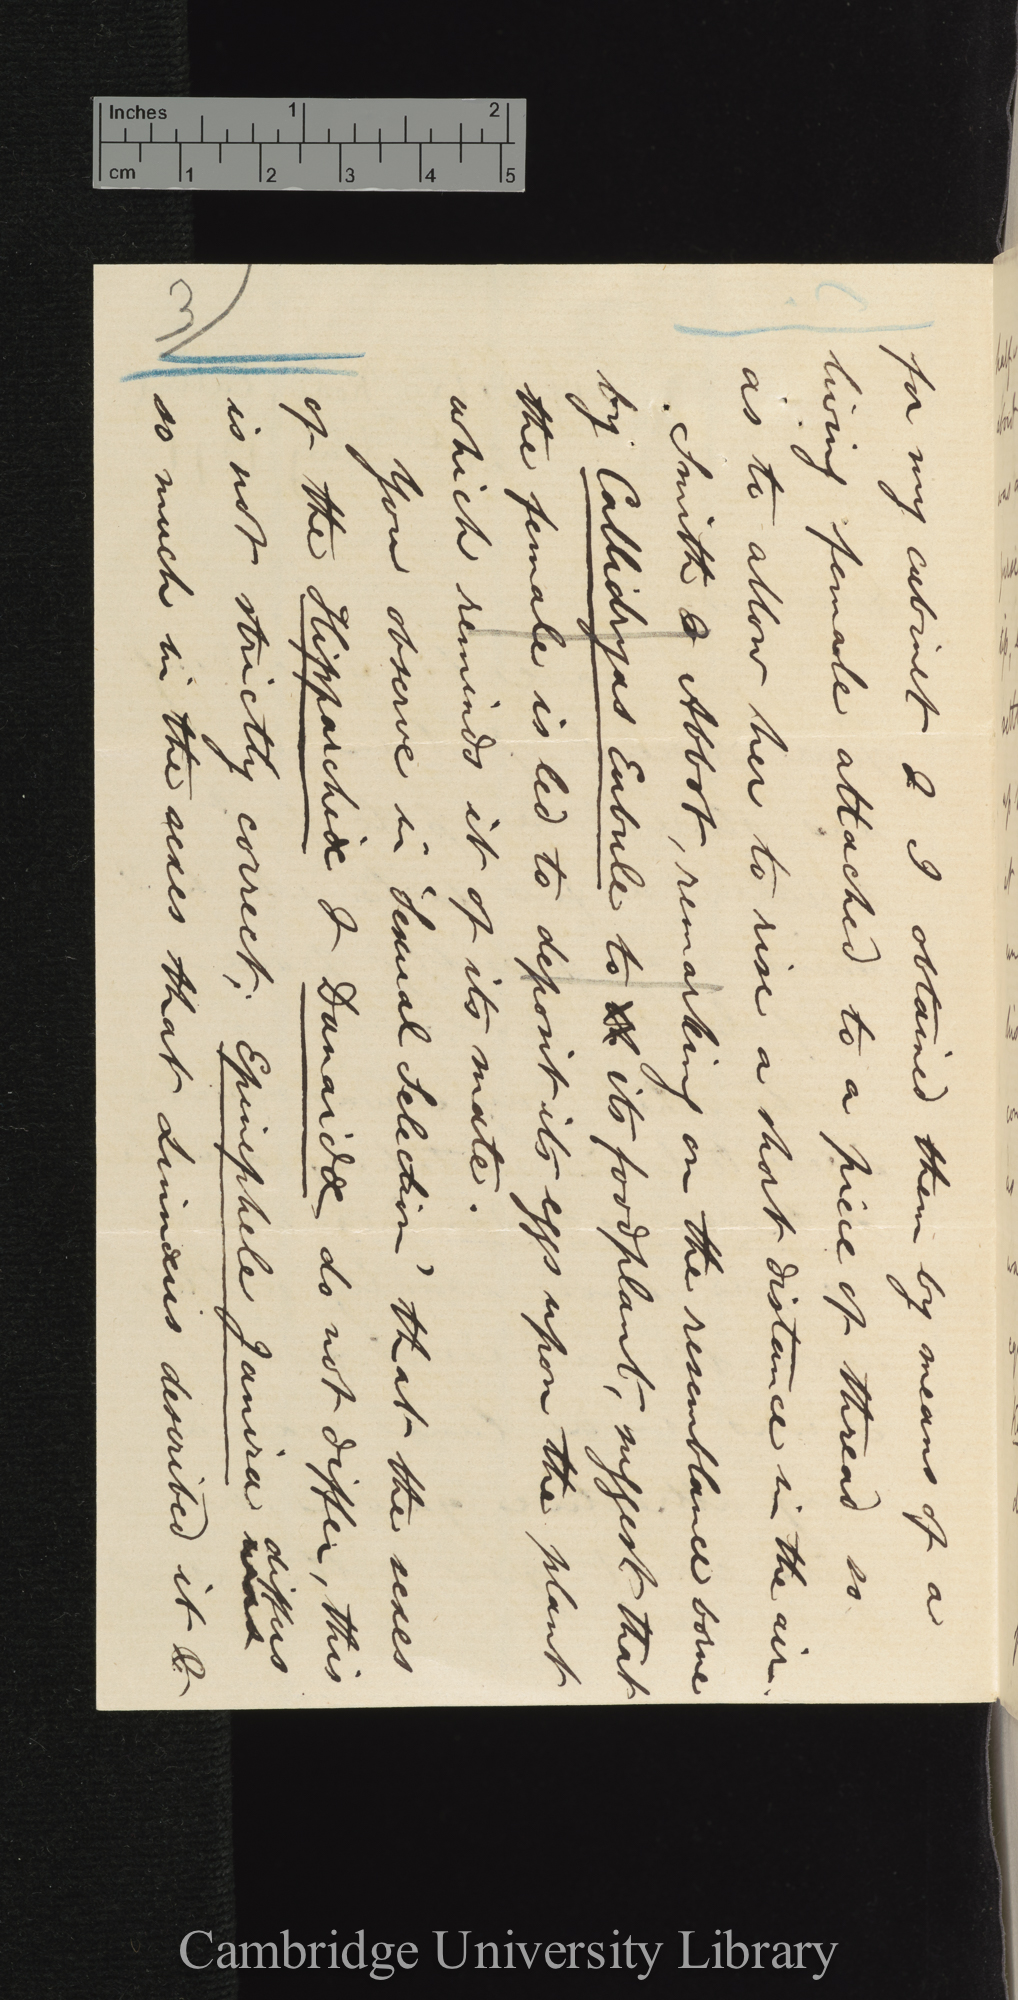 Inches 1 2
cm 1 2 3 4 5
3)
for my cabinet & I obtained them by means of a
living female attached to a piece of thread so
as to allow her to rise a short distance in the air.
Smith & Abbot, remarking on the resemblance borne
by Callidryas Eubule to its foodplant, suggest that
the female is led to deposit its eggs upon the plant
which reminds it of its mate.
You observe in 'Sexual Selection' that the sexes
of the Hipparchiæ & Danaidæ do not differ, this
is not strictly correct; Epinephele Janira differs
so much in the sexes that Linnæus described it &
Cambridge University Library